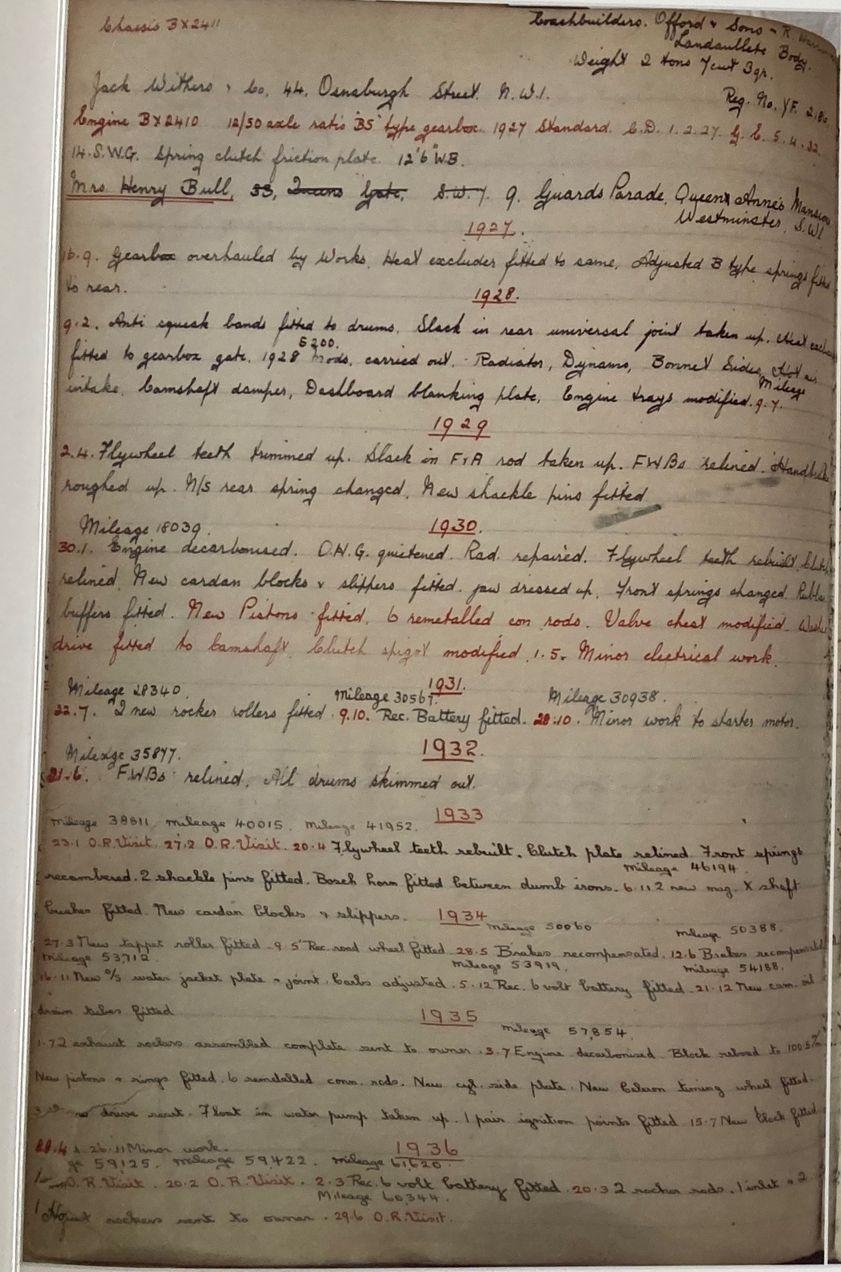 Chassis BX2411
Coachbuilders. Offord & Sons - R.
Landaullete Body.
Weight 2 tons 7cwt 3qr.
Jack Withers & Co, 44, Osnaburgh Street. N.W.1.
Reg. No. YF.
Engine BX2410 12/50 axle ratio 'BS' type gearbox. 1927 Standard. C.D. 1.2.27. G.E. 5.4.32
14.S.W.G. Spring clutch friction plate. 12'6" W.B.
Mrs Henry Bull, 33, Queens Gate, S.W.7. 9, Guards Parade, Queen Anne's Mansions
Westminster, S.W.1
1927.
16.9. Gearbox overhauled by Works. Heat excluder fitted to same. Adjusted B type springs fitted
to rear.
1928.
9.2. Anti squeak bands fitted to drums. Slack in rear universal joint taken up. Heat
5200.
fitted to gearbox gate. 1928 mods. carried out. Radiator, Dynamo, Bonnet Sides, Hot air
Mileage
intake, Camshaft damper, Dashboard blanking plate, Engine trays modified. 9.7.
1929
2.4. Flywheel teeth trimmed up. Slack in F&A rod taken up. FWBs relined. Handbrake
roughed up. N/S rear spring changed. New shackle pins fitted
Mileage 18039.
1930.
30.1. Engine decarbonised. O.H.G. quietened. Rad. repaired. Flywheel teeth rebuilt. Clutch
relined. New cardan blocks & slippers fitted. jaw dressed up. Front springs changed. Rubber
buffers fitted. New Pistons fitted. 6 remetalled con rods. Valve chest modified.
drive fitted to Camshaft. Clutch spigot modified. 1.5. Minor electrical work.
1931.
Mileage 28340. Mileage 30567. Mileage 30938.
22.7. 2 new rocker rollers fitted. 9.10. Rec. Battery fitted. 28.10. Minor work to starter motor.
1932.
Mileage 35877.
21.6. FWBs relined. All drums skimmed out.
1933
Mileage 38811. Mileage 40015. Mileage 41952.
23.1 O.R. Visit. 27.2 O.R. Visit. 20.4 Flywheel teeth rebuilt. Clutch plate relined. Front springs
Mileage 46194.
recambered. 2 shackle pins fitted. Bosch horn fitted between dumb irons. 6.11.2 new mag. X shaft
bushes fitted. New cardan blocks & slippers.
1934
Mileage 50060 Mileage 50388.
27.3 New tappet roller fitted. 9.5 Rec. road wheel fitted. 28.5 Brakes recompensated. 12.6 Brakes recompensated
Mileage 53712. Mileage 53919. Mileage 54188.
16.11 New O/S water jacket plate & joint. Carbs adjusted. 5.12 Rec. 6 volt battery fitted. 21.12 New cam. oil
drain tubes fitted
1935
Mileage 57,854
1.7 2 exhaust rockers assembled complete sent to owner. 3.7 Engine decarbonised. Block rebored to
New pistons & rings fitted. 6 remetalled conn. rods. New cyl. side plate. New Celeron timing wheel fitted.
drive reset. Float in water pump taken up. 1 pair ignition points fitted. 15.7 New block fitted
26.11 Minor work.
1936
59125. Mileage 59422. Mileage 61,620.
O.R. Visit. 20.2 O.R. Visit. 2.3 Rec. 6 volt battery fitted. 20.3 2 rocker rods. 1 inlet & 2
Mileage 60344.
rockers sent to owner. 29.6 O.R. Visit.